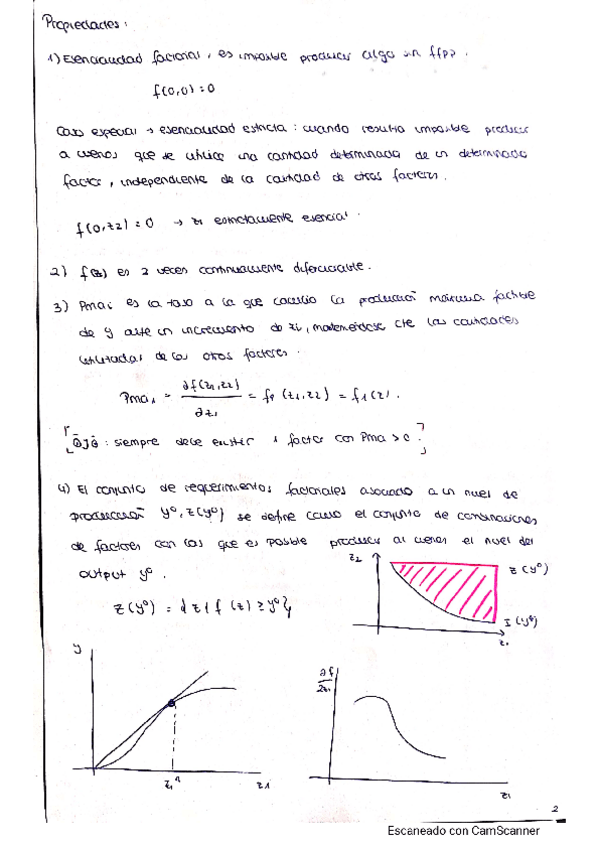 Propiedades:
1) Esencialidad factorial, es imposible producir algo sin ffpp.
f(0,0)=0
Caso especial → esencialidad estricta: cuando resulta imposible producir
a menos que se utilice una cantidad determinada de un determinado
factor, independiente de la cantidad de otros factores.
f(0,z2)=0 → z1 estrictamente esencial.
2) f(z) es 2 veces continuamente diferenciable.
3) Pmai es la tasa a la que cambia la producción máxima factible
de y ante un incremento de zi, manteniéndose cte las cantidades
utilizadas de los otros factores.
Pma1 = ∂f(z1,z2) / ∂z1 = f1 (z1,z2) = f1(z).
¡Ojo: siempre debe existir 1 factor con Pma > 0.
4) El conjunto de requerimientos factoriales asociado a un nivel de
producción y⁰, z(y⁰) se define como el conjunto de combinaciones
de factores con las que es posible producir al menos el nivel del
output y⁰.
z(y⁰) = {z | f(z) ≥ y⁰}
z2
z(y⁰)
I(y⁰)
z1
y
z1
∂f
∂z1
z1
2
Escaneado con CamScanner